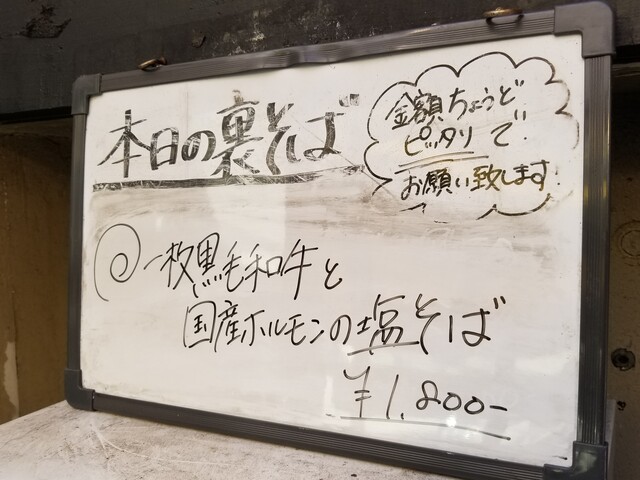 本日の裏そば
金額ちょうど
ピッタリで
お願い致します
一枚黒毛和牛と
国産ホルモンの塩そば
¥1,800-